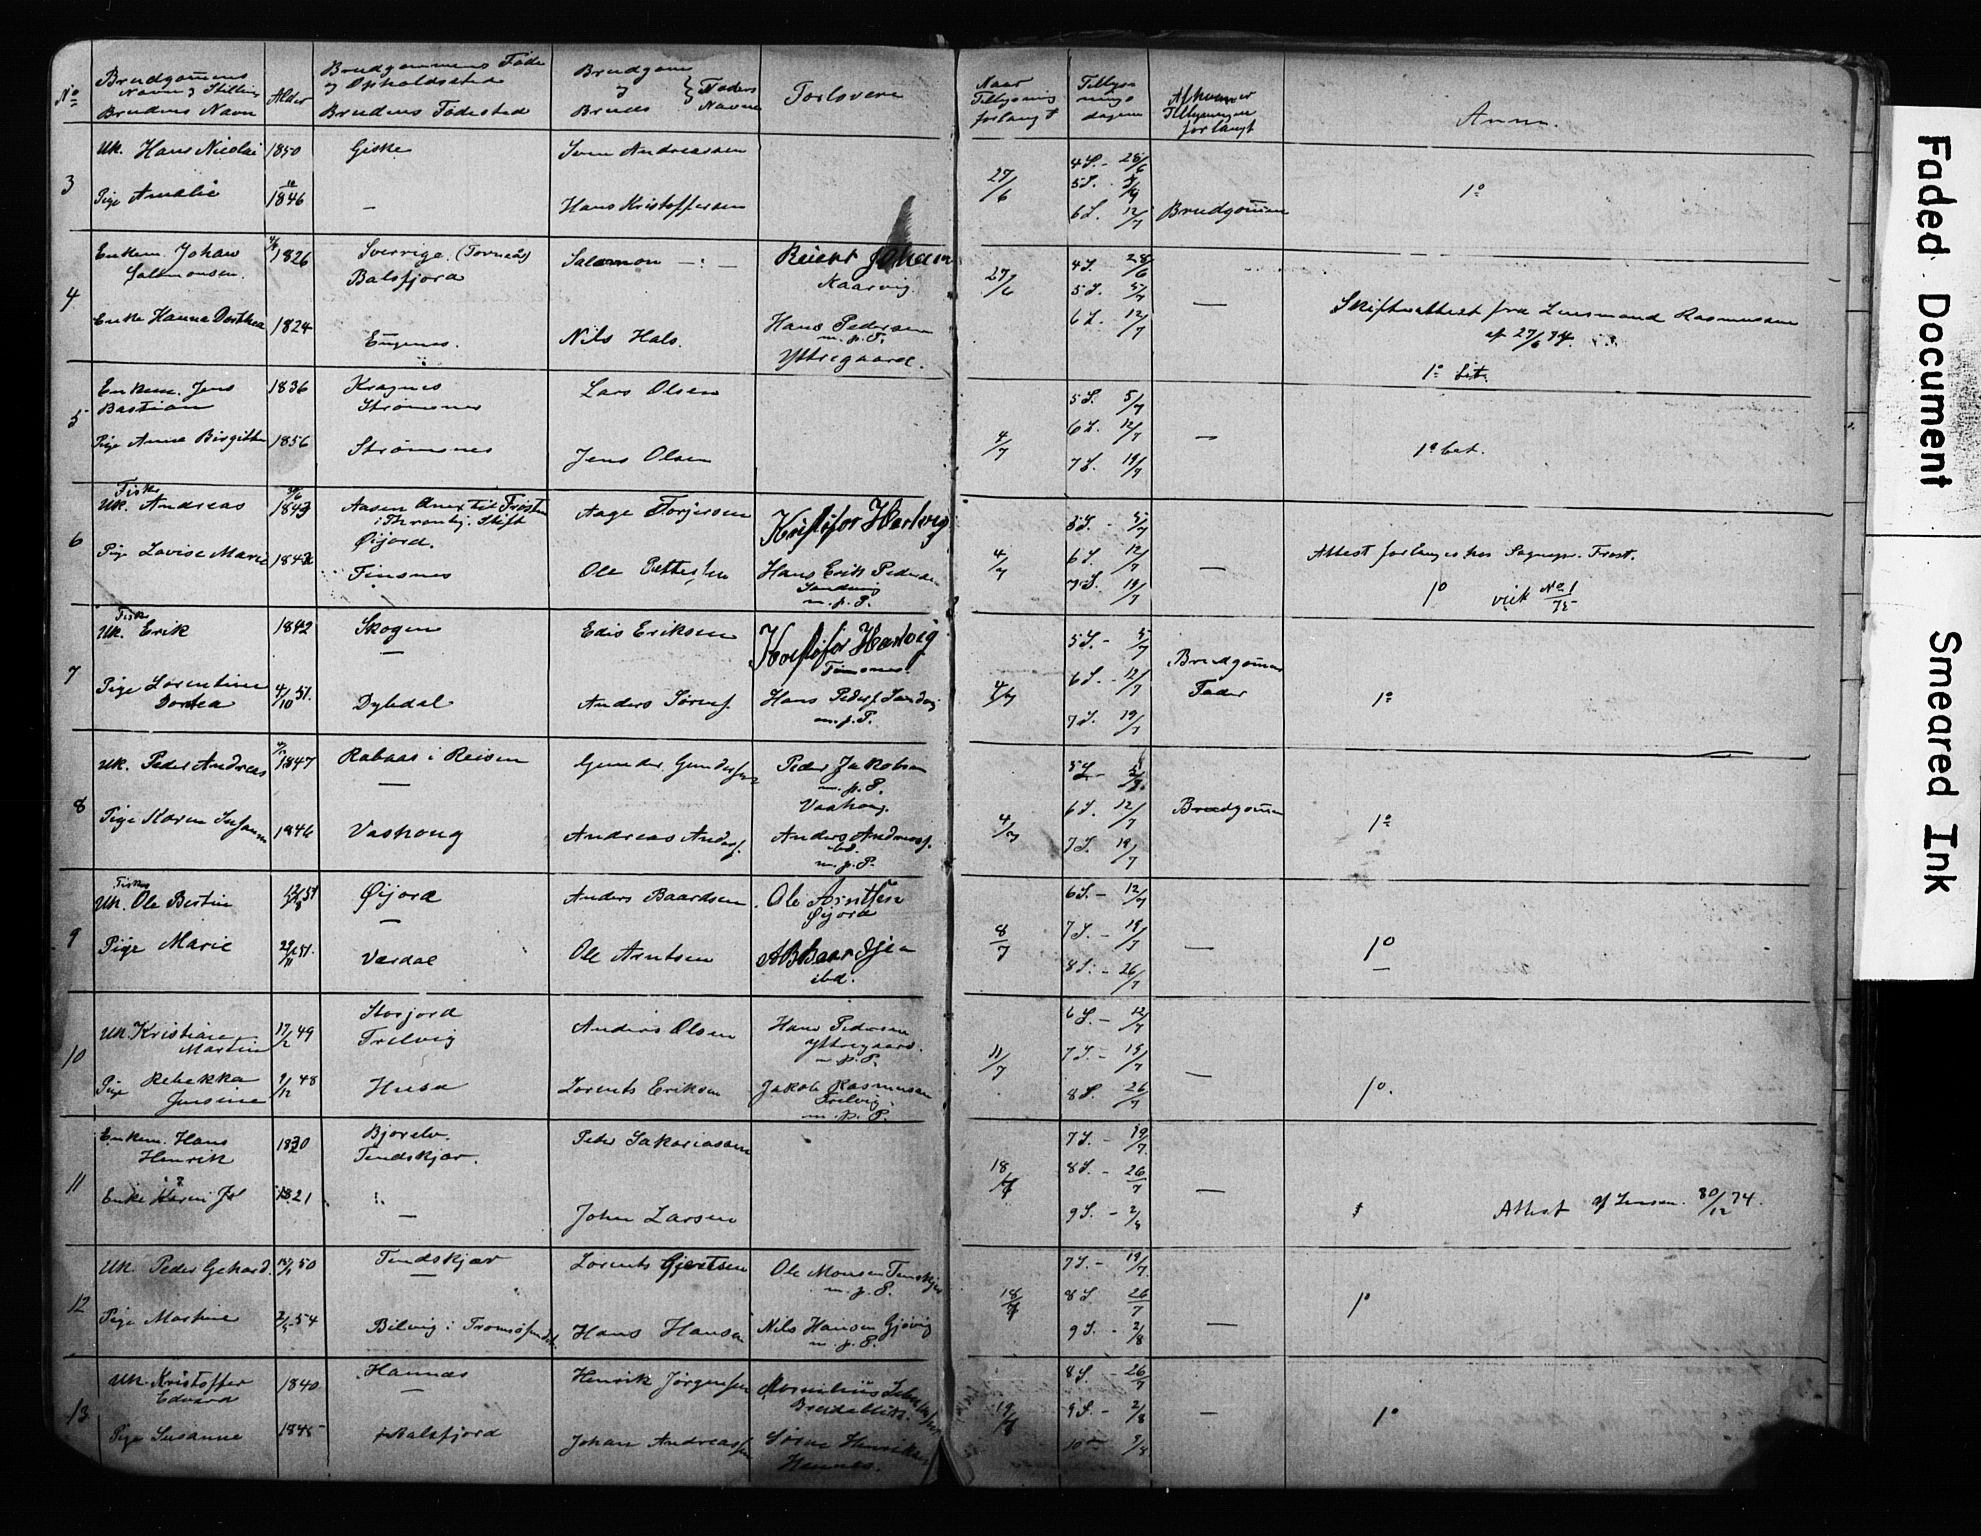 No
Brudgomens
Navn og Stilling
Brudens Navn
Alder
Brudgommens Føde
og Opholdssted
Brudens Fødested
Brudgom
og
Bruds
Faders
Navne
Forlovere
Naar
Tillysning
forlangt
Tillys-
nings
dagene
Af hvem er
Tillysningen
forlangt
Anm.
3
Uk. Hans Nicolai
1850
Giske
Sven Andreassen
Pige Amalie
1846
Hans Kristoffersen
27/6
4 S. - 28/6
5 S. - 5/7
6 S. 12/7
Brudgomen
1°
4
Enkem. Johan
Salomonsen
1826
Sverrige (Torneå)
Balsfjord
Salomon - : -
Johan
Kaarvig
Enke Hanna Dorthea
1824
Nils Hals.
Hans Pedersen
m. p. P.
Yttregaard.
27/6
4 S. 28/6
5 S. 5/7
6 S. 12/7
—
Skifteattest fra Lensmand Rasmussen
af 27/6 74.
1° bet.
5
Enkem. Jens
Bastian
1836
Kragnes
Strømsnes
Lars Olsen
Pige Anna Birgitte
1856
Strømsnes
Jens Olsen
4/7
5 S. 5/7
6 S. 12/7
7 S. 19/7
—
1° bet.
6
Fisker
Uk. Andreas
1843
Aasen Anex til Frosten
i Thronhj. Stift
Øijord.
Aage Torjersen
Kristofor Hartvig
Pige Lovise Marie
1842
Finsnes
Ole Pettersen
Hans Erik Pedersen
Sandvig
m. p. P.
4/7
5 S. - 5/7
6 S. 12/7
7 S. 19/7
—
Attest forlanges hos Sognepr. Frost.
1° vid No 1/75
7
Fisker
Uk. Erik
1842
Skogen
—
Edis Eriksen
Kristofor Hartvig
Finsnes
Pige Lorentine
Dortea
4/10 51.
Dybdal
Anders Sørens.
Hans Peders. Sandvig
m. p. P.
4/7
5 S. - 5/7
6 S. - 12/7
7 S. 19/7
Brudgomens
Fader
1°
8
Uk. Peder Andreas
1847
Rabaas i Reisen
—
Gunder Gundersen
Peder Jakobsen
m. p. P.
Vashoug.
Pige Maren Susanna
1846
Vashoug
Andreas Anders.
Anders Andreass.
ibd.
m. p. P.
4/7
5 S. - 5/7
6 S. 12/7
7 S. 19/7
Brudgomen
1°
9
Fisker
Uk. Ole Bertin
51
Øijord
—
Anders Baardsen
Ole Arntsen
Øijord
Pige Marie
29/11 51.
Værdal
Ole Arntsen
ibd.
8/7
6 S. - 12/7
7 S. - 19/7
8 S. - 26/7
—
1°
10
Uk. Kristian
Martin
17/2 49
Storjord
Trelvig
Anders Olsen
Hans Pedersen
Yttregaard.
m. p. P.
Pige Rebekka
Jensine
9/12 48
Husa
Lorents Eriksen
Jakob Rasmussen
Trelvig
m. p. P.
11/7
6 S. - 12/7
7 S. - 19/7
8 S. 26/7
—
1°.
11
Enkem. Hans
Henrik
1820
Bjorelv.
Tendskjær.
Peder Sakariasen
Enke Karen
1821
—
John Larsen
18/7
7 S. - 19/7
8 S. - 26/7
9 S. - 2/8
—
Attest af Lensm. 30/12 74.
12
Uk. Peder Gehard.
50
Tendskjær
—
Lorents Gjertsen
Ole Monsen Tenskjær
m. p. P.
Pige Martine
2/5 54
Bilvig i Tromsøsundet.
Hans Hansen
Nils Hansen Gjøvig
m. p. P.
18/7
7 S. - 19/7
8 S. 26/7
9 S. - 2/8
—
1°
13
Uk. Kristoffer
Edvard
1840
Hannes
—
Henrik Jørgensen
Pige Susanne
1845
Balsfjord
Johan Andreassen
Sørne Henriksen
Hennes.
19/7
8 S. - 26/7
9 S. - 2/8
10 - 9/8
—
1°
Faded Document
Smeared Ink